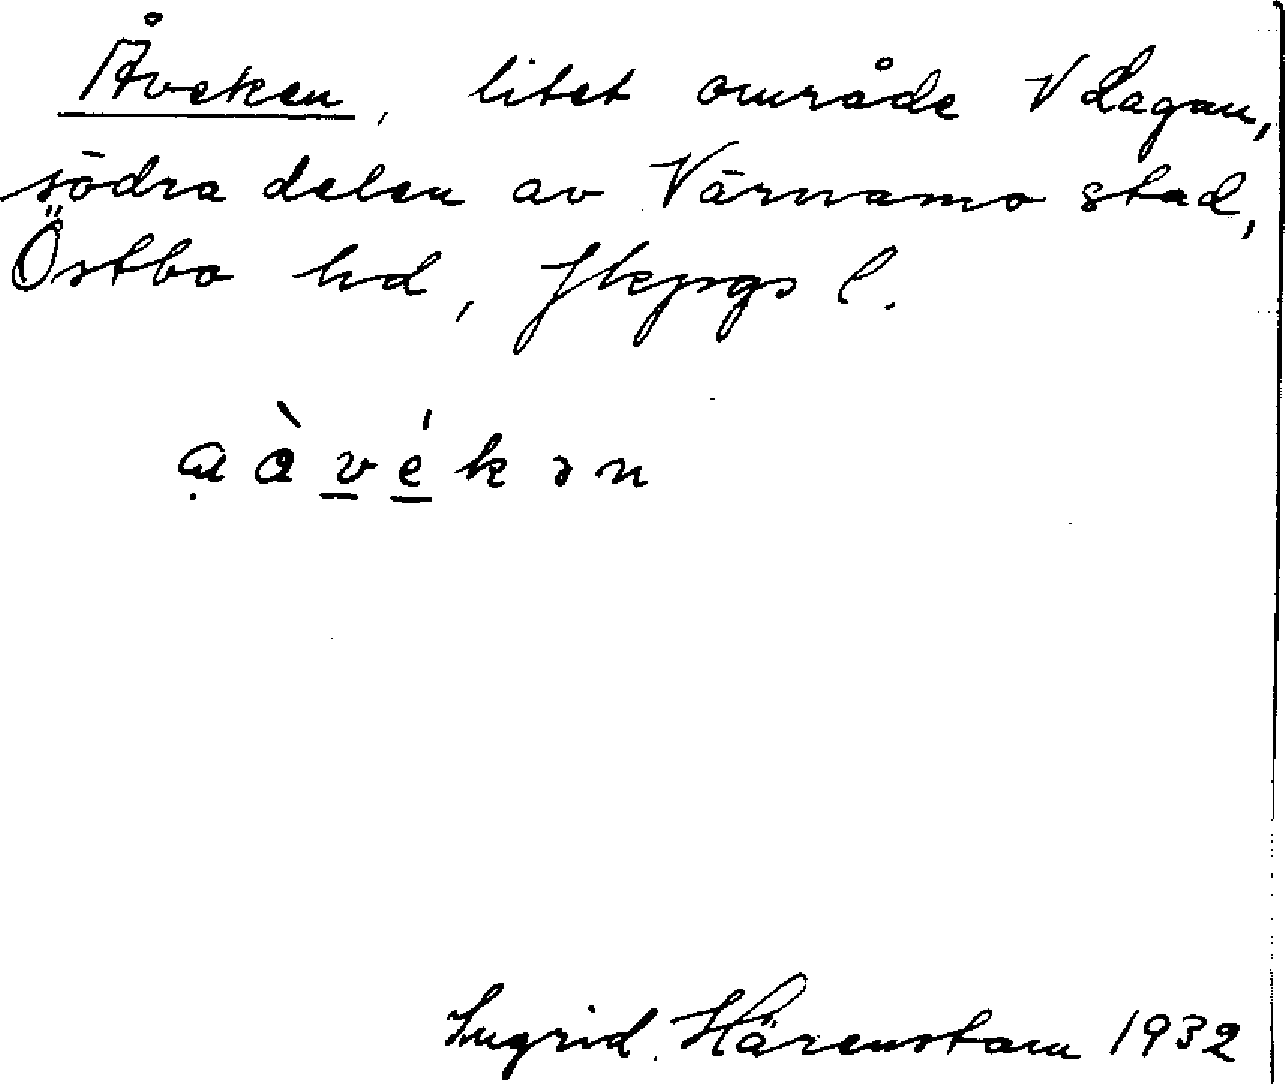 Åveken, litet område V Lagan,
södra delen av Värnamo stad,
Östbo hd, Jkpgs l.
a̤ȧ̀ v̲é̲kən
Ingrid Härenstam 1932